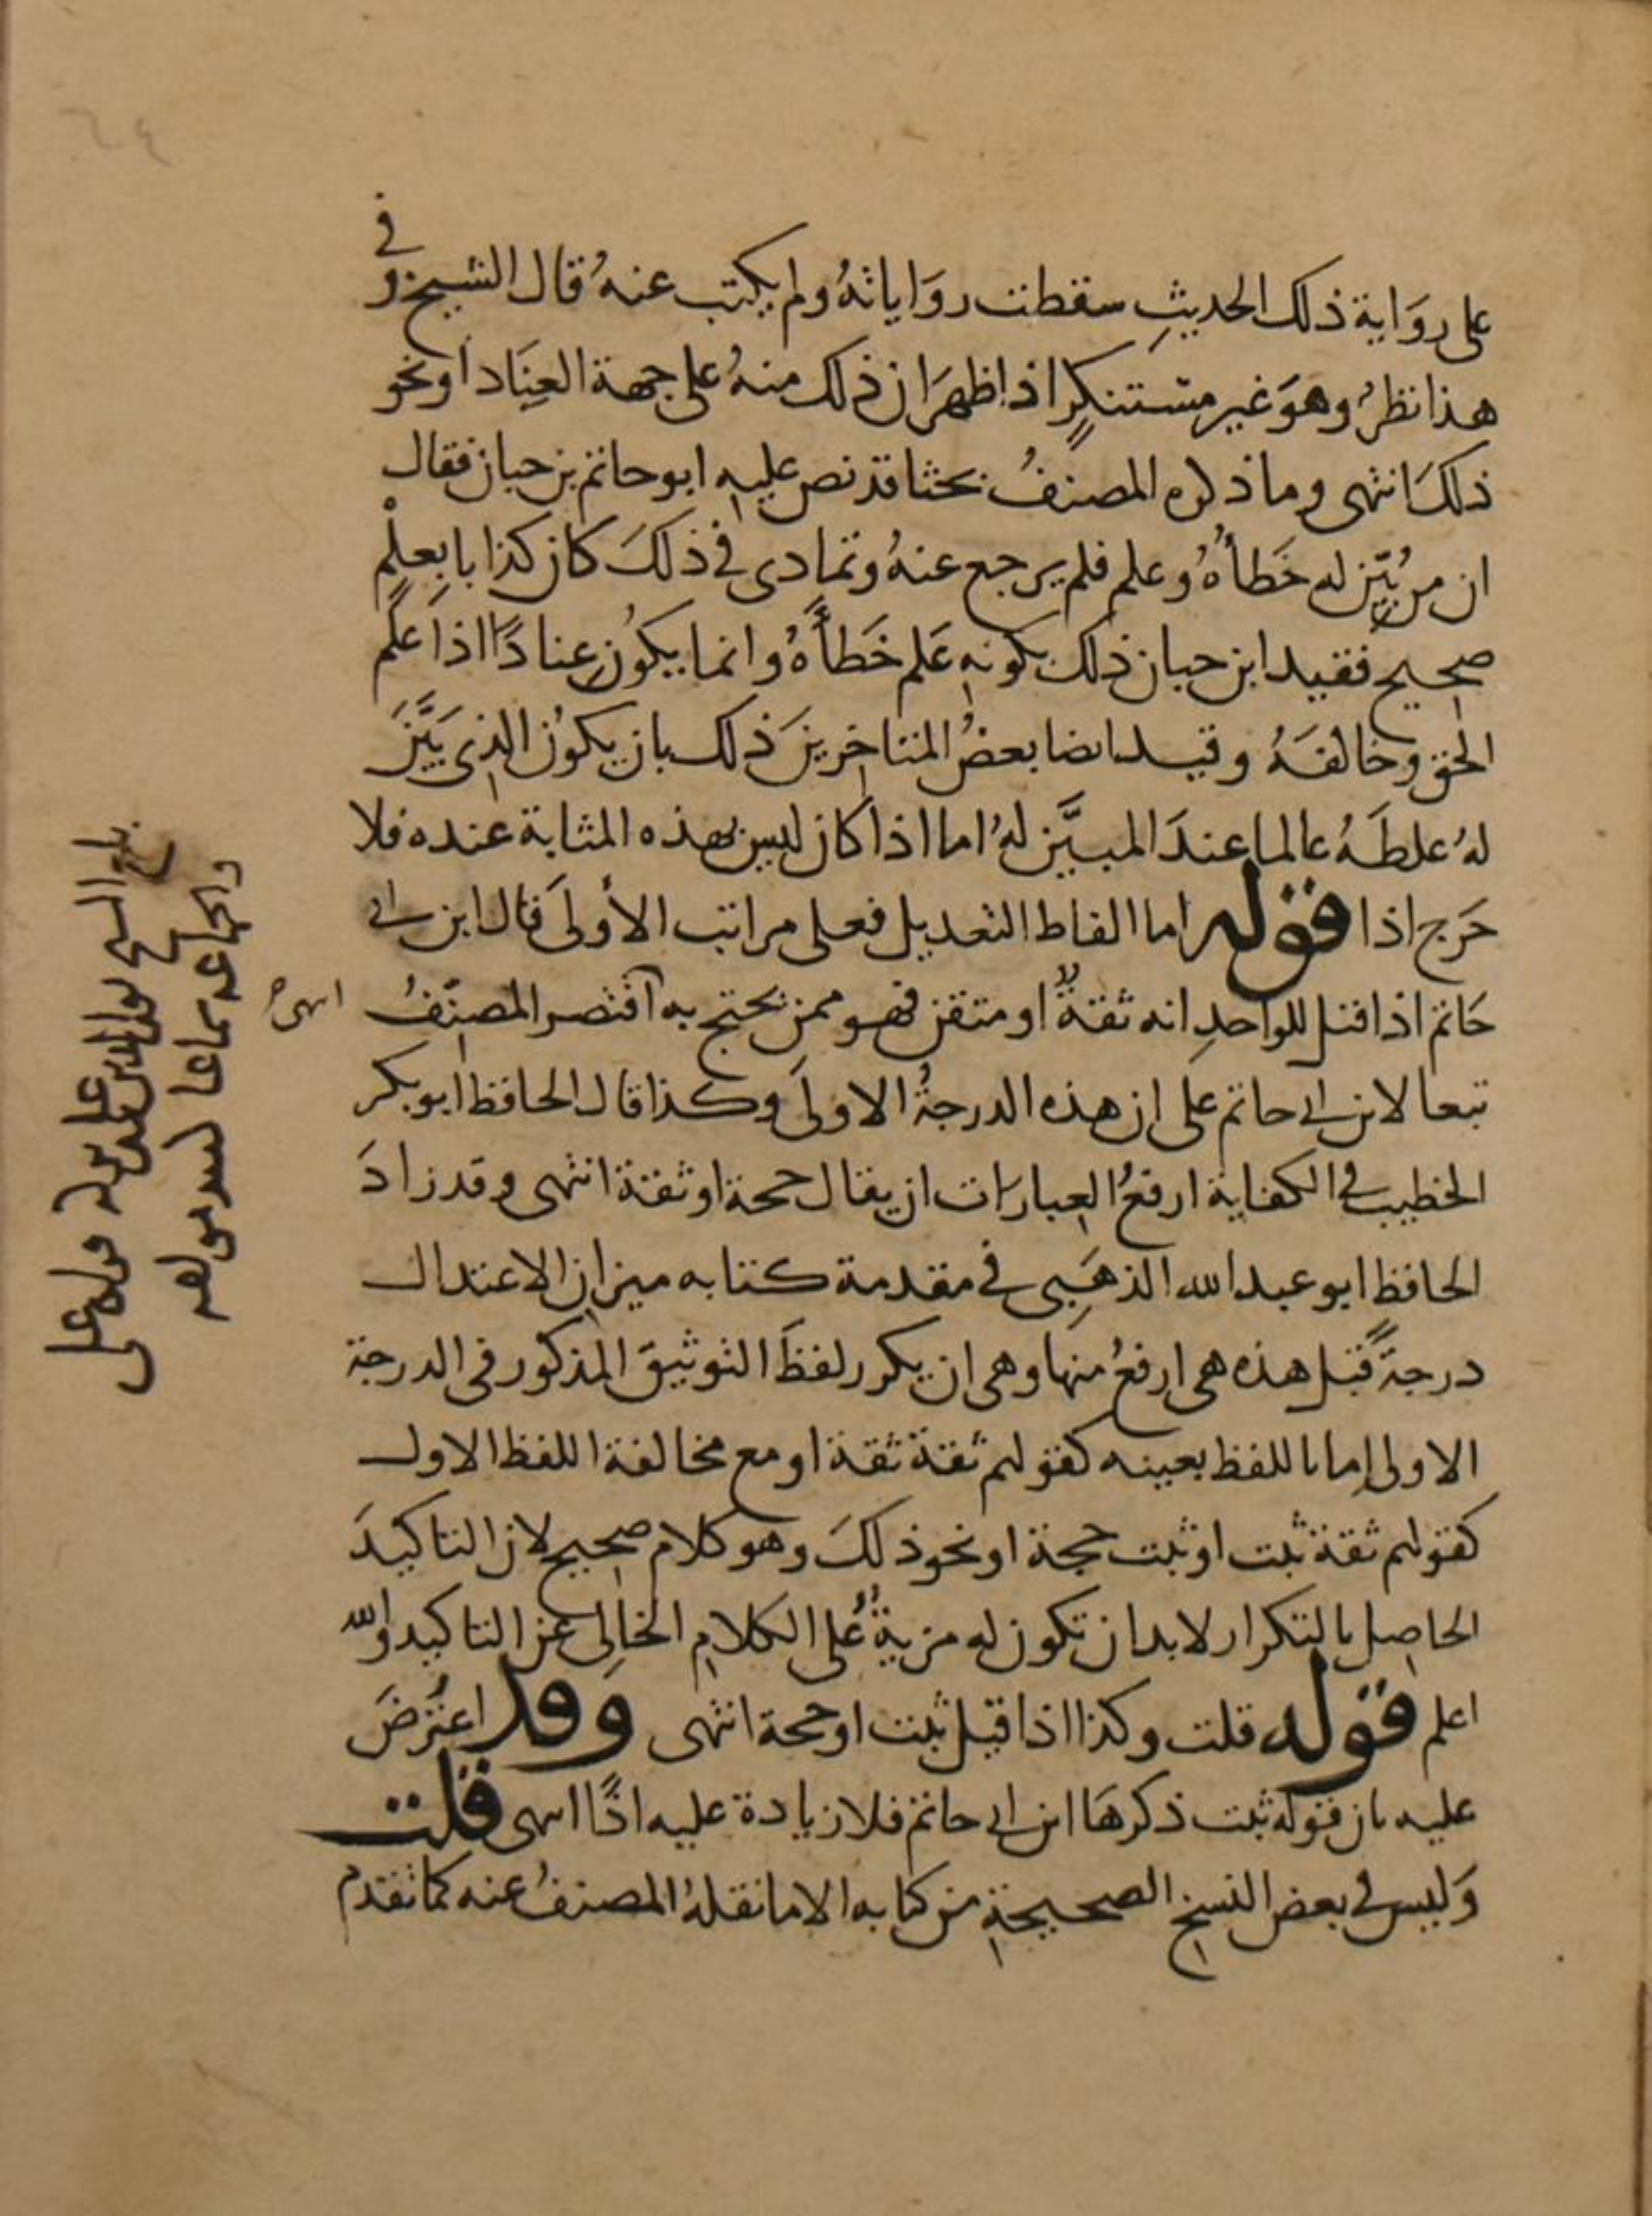 على روَاية ذلك الحديثِ سقطت روَاياتهُ ولم يكتب عنهُ قال الشيخ وفي
هذا نظرٌ وهوَ غير مستنكرٍ اذا ظهرَ ان ذلك منهُ على جهة العِنَاد او نحو
ذلكَ انتهى وما ذكره المصنفُ بحثا قد نص عليه ابو حاتم بن حبان فقال
ان من بُيّن له خَطأهُ وعلم فلم يرجع عنهُ وتمادى في ذلكَ كان كذابا بعِلْمٍ
صحيح فقيد ابن حبان ذلك بكونه عَلم خَطأَهُ وانما يكونُ عنادًا اذا عَلمَ
الحق وخالفَهُ وقيد ايضا بعضُ المتاخرينَ ذلك بان يكونُ الذي بَيَّنَ
لهُ غلطَهُ عالما عندَ المبيَّن لهُ اما اذا كان ليس بهذه المثابة عنده فلا
حَرج اذا قوله اما الفاظ التعديل فعلى مراتب الأولىَ قال ابن ابي
حَاتم اذا قيل للواحدِ انه ثقةٌ او متقن فهو ممن يحتج به اقتصر المصنّفُ
انتهى
تبعا لابن ابي حاتم على ان هذه الدرجةُ الاولىَ وكذا قال الحافظ ابو بكر
الخطيب في الكفاية ارفعُ العبارات ان يقال حجة او ثقة انتهى وقد زادَ
الحافظ ابو عبد الله الذهَبِي في مقدمة كتابه ميزان الاعتدال
درجةً قبل هذه هي ارفعُ منها وهي ان يكرر لفظَ التوثيق المذكور في الدرجة
الاولى إما باللفظ بعينه كقولهم ثقة ثقة او مع مخالفة اللفظ الاول
كقولهم ثقة ثبت او ثبت حجة او نحو ذلكَ وهو كلام صحيح لان التاكيدَ
الحاصل بالتكرار لابد ان تكون له مزيةٌ على الكلامِ الخالِي عن التاكيد والله
اعلم قوله قلت وكذا اذا قيل ثبت او حجة انتهى وقد اعتُرضَ
عليه بان قوله ثبت ذكرهَا ابن ابي حاتم فلا زيادة عليه اذًا انتهى قلت
وَليس في بعض النسخ الصحيحة من كتابه الا ما نقلهُ المصنفُ عنه كما تقدم